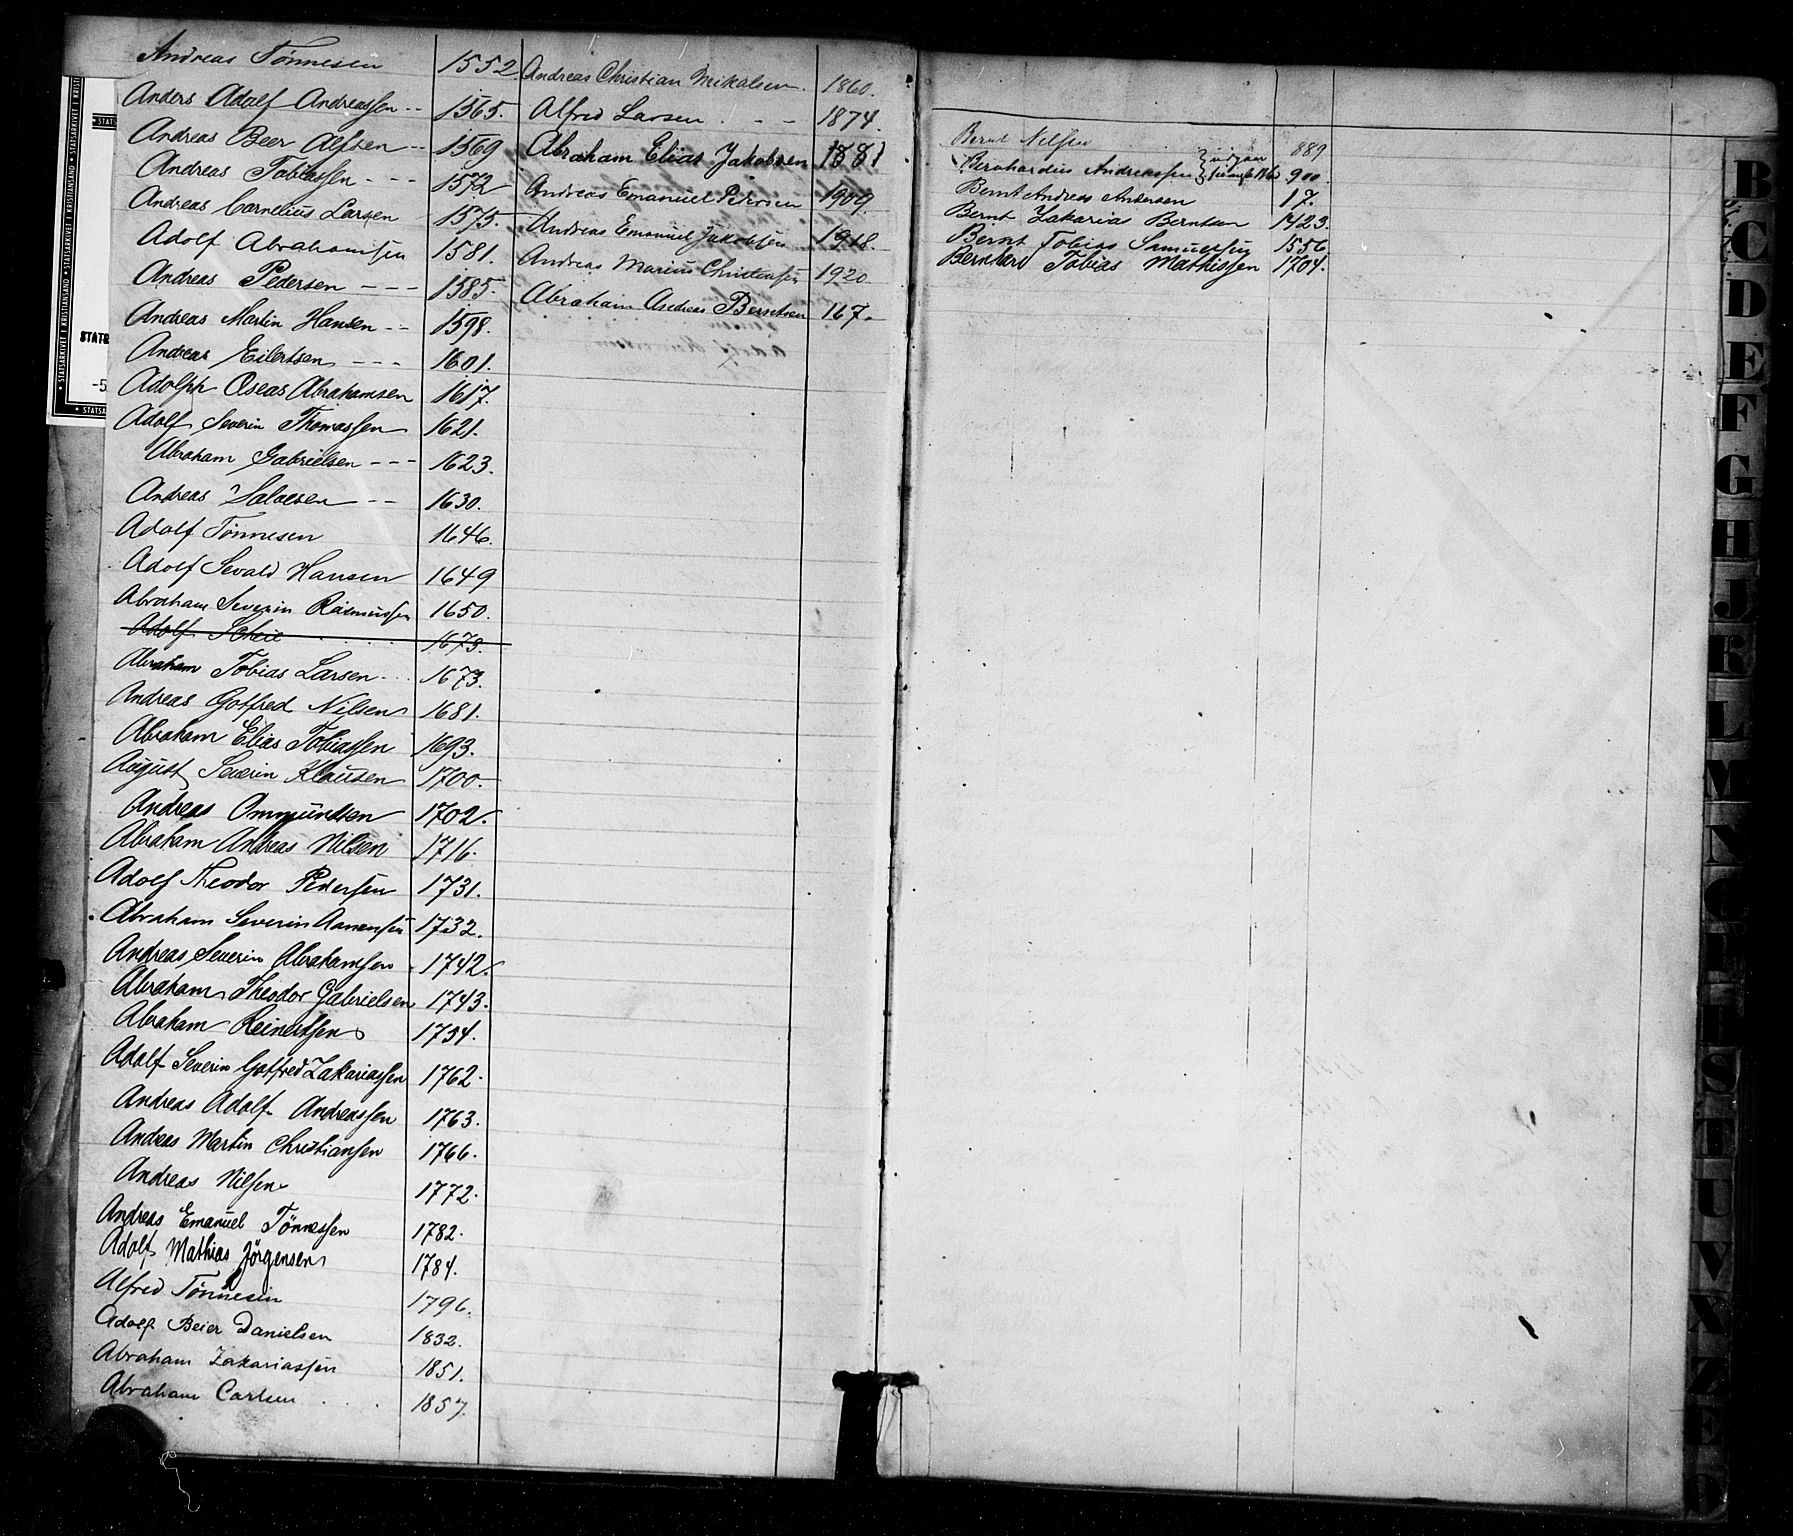 Andreas Tønnesen 1552
Anders Adolf Andreassen -- 1565.
Andreas Beer Alfsen -- 1569
Andreas Tobiassen --- 1572
Andreas Cornelius Larsen 1575.
Adolf Abrahamsen 1581.
Andreas Pedersen --- 1585.
Andreas Martin Hansen -- 1598.
Andreas Eilertsen --- 1601.
Adolph Oseas Abrahamsen 1617.
Adolf Severin Thomassen 1621.
Abraham Gabrielsen --- 1623.
Andreas Salvesen -- 1630.
Adolf Tønnesen 1646.
Adolf Sevald Hansen 1649
Abraham Severin Rasmussen 1650.
Adolf Scheie 1673.
Abraham Tobias Larsen 1673.
Andreas Gotfred Nilsen 1681.
Abraham Elias Tobiassen 1693.
August Severin Klausen 1700.
Andreas Ommundsen 1702.
Abraham Andreas Nilsen 1716.
Adolf Theodor Pedersen 1731.
Abraham Severin Aanensen 1732.
Andreas Severin Abrahamsen 1742.
Abraham Theodor Gabrielsen 1743.
Abraham Reinertsen 1754.
Adolf Severin Gotfred Zakariassen 1762.
Andreas Adolf Andreassen 1763.
Andreas Martin Christiansen 1766.
Andreas Nilsen 1772.
Andreas Emanuel Tönnessen 1782.
Adolf Mathias Jörgensen 1784.
Alfred Tønnesen 1796.
Adolf Beier Danielsen 1832.
Abraham Zakariassen 1851.
Abraham Carlsen .... 1857.
Andreas Christian Mikalsen. 1860.
Alfred Larsen . - - 1874.
Abraham Elias Jakobsen 1881
Andreas Emanuel Petersen 1909.
Andreas Emanuel Jakobsen 1918.
Andreas Marius Christensen 1920.
Abraham Andreas Berntsen 167.
Bernt Nilsen 889
Bernhardus Andreassen 900.
Bernt Andreas Andersen 17.
Bernt Zakarias Berntsen 1423.
Bernt Tobias Samuelsen 1556.
Bernhard Tobias Mathissen 1704.
B
C
D
E
F
G
H
J
K
L
M
N
O
P
R
S
T
U
V
X
Z
Æ
Ø
STATSARKIVET I KRISTIANSAND